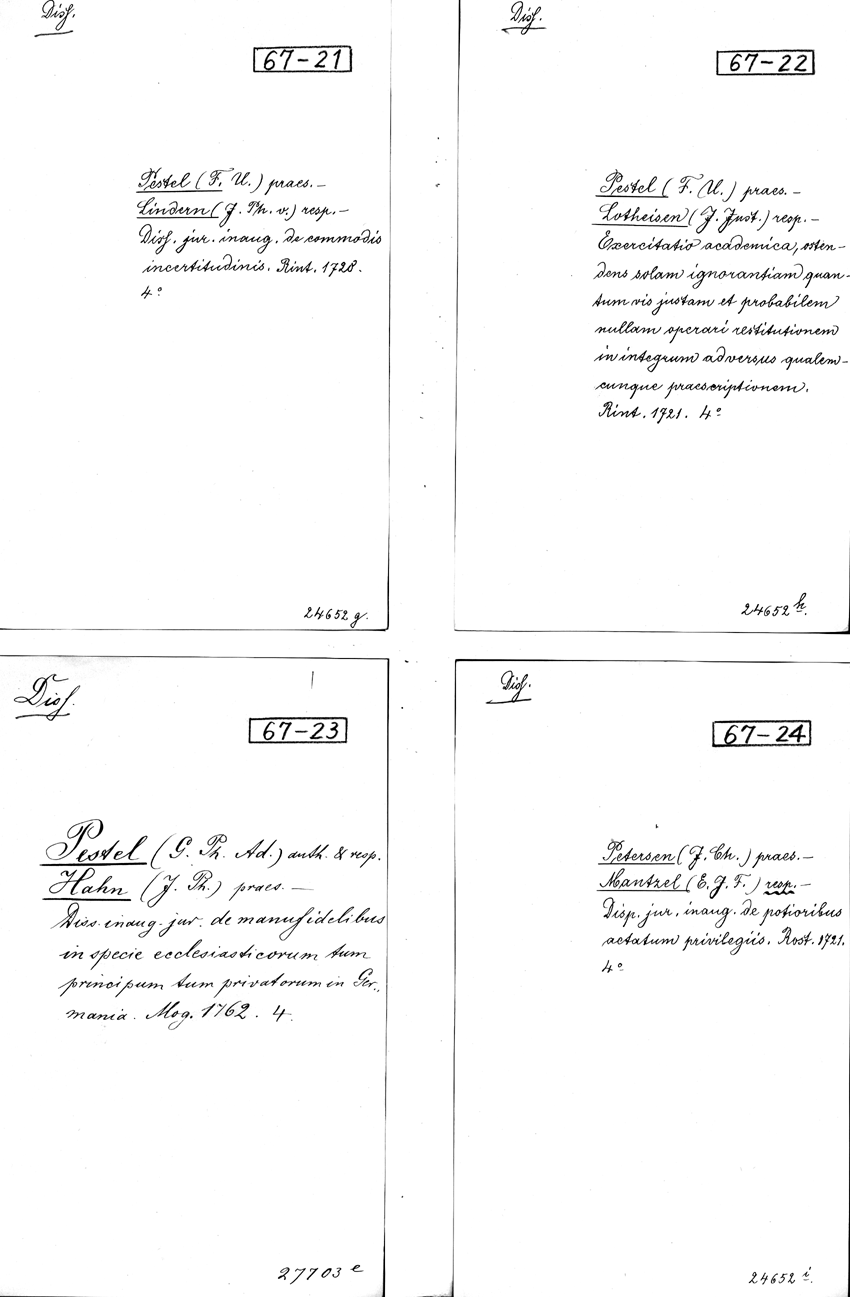 Diss.
67-21
Pestel (F. U.) praes. –
Lindern (J. Ph. v.) resp. –
Diss. jur. inaug. de commodis
incertitudinis. Rint. 1728.
4°
24652 g.
Diss.
67-22
Pestel (F. U.) praes. –
Lotheisen (J. Just.) resp. –
Exercitatio academica, osten-
dens solam ignorantiam quan-
tum vis justam et probabilem
nullam operari restitutionem
in integrum adversus qualem-
cunque praescriptionem.
Rint. 1721. 4°
24652 h.
Diss.
67-23
Pestel (G. Ph. Ad.) auth. & resp.
Hahn (J. Ph.) praes. –
Diss. inaug. jur. de manufidelibus
in specie ecclesiasticorum tum
principum tum privatorum in Ger-
mania. Mog. 1762. 4.
27703 e
Diss.
67-24
Petersen (J. Ch.) praes. –
Mantzel (E. J. F.) resp. –
Disp. jur. inaug. de potioribus
aetatum privilegiis. Rost. 1721.
4°
24652 i.